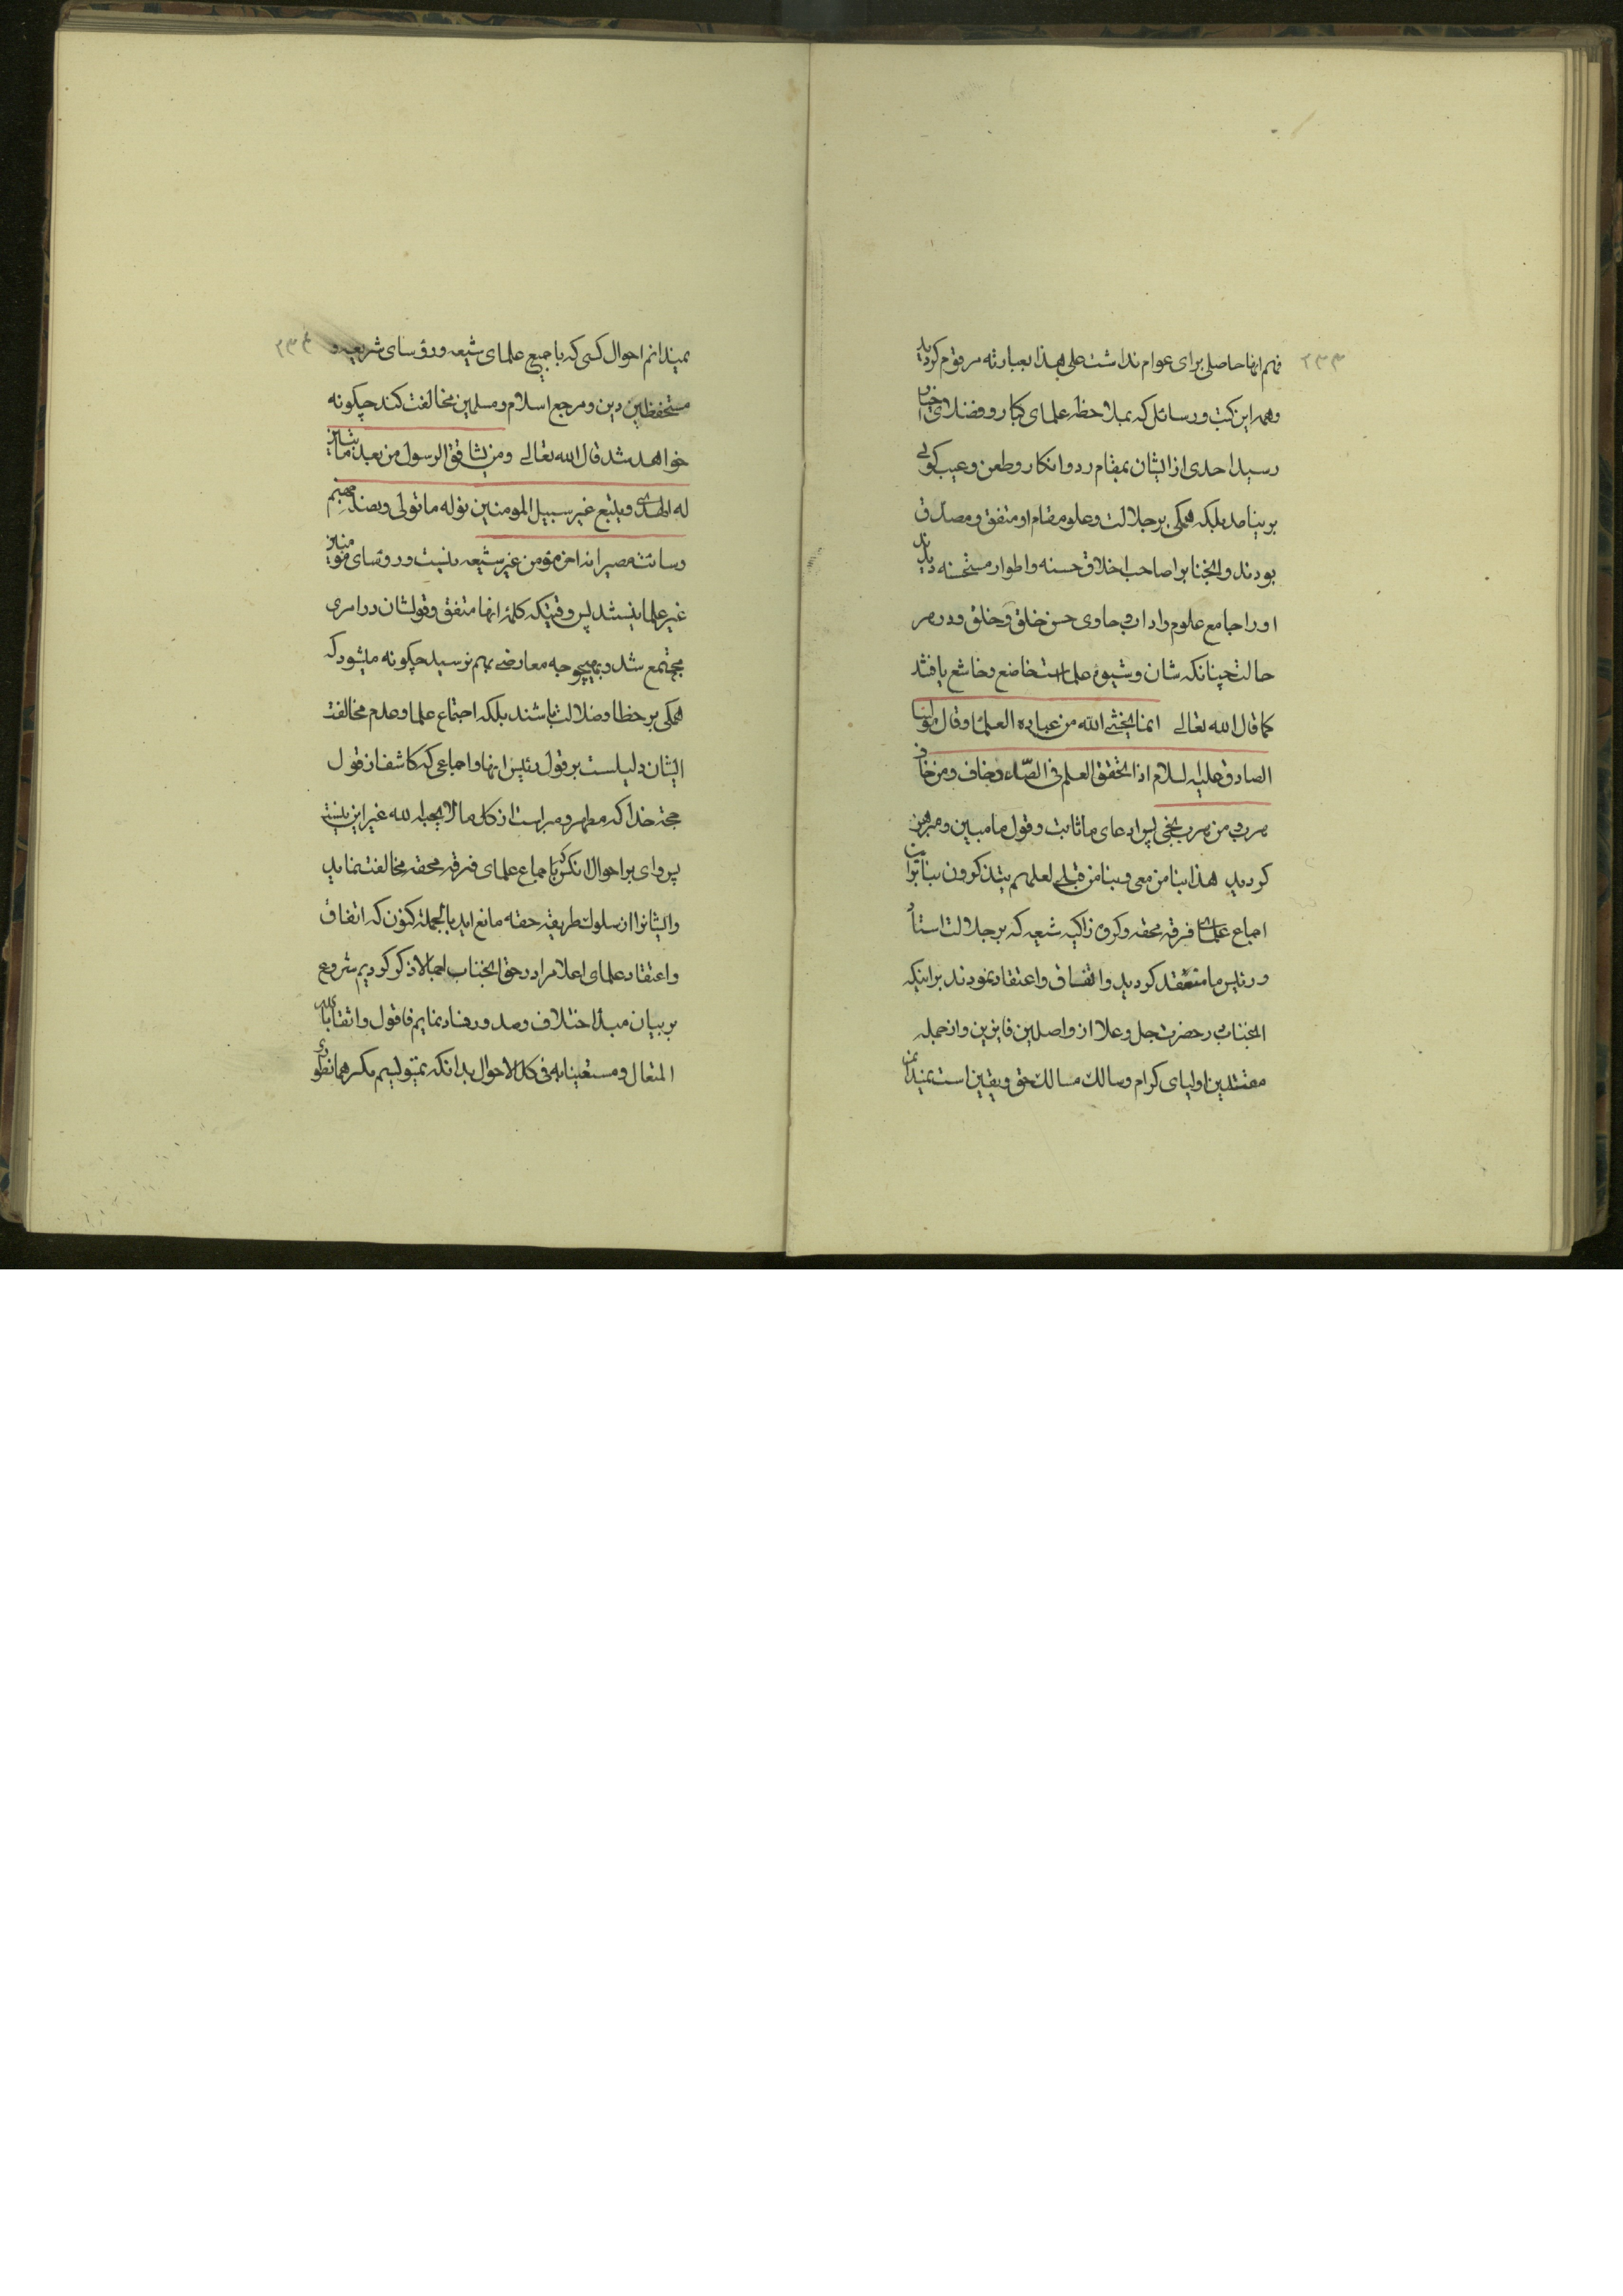 ۲۳۳
فهم انها حاصلی برای عوام نداشت علی هذا بعبارته مرقوم کردید
وهمه این کتب و رسائل که بملاحظه علمای کبار و فضلای اخیار
رسید احدی از ایشان بمقام رد و انکار و طعن و عیب کوئی
بر نیامد بلکه همکی بر جلالت و علو مقام او متفق و مصدق
بودند و انجناب را صاحب اخلاق حسنه و اطوار مستحسنه دیدند
او را جامع علوم و اداب و حاوی حسن خلق و خلق و در هر
حالت چنانکه شان و شیوه علما است خاضع و خاشع یافتند
کما قال الله تعالی انما یخشی الله من عباده العلماء و قال مولینا
الصادق علیه السلام اذا تحقق العلم فی الصدر خاف و من خاف
هرب و من هرب نجی پس ادعای ما ثابت و قول ما مبین و مبرهن
کردید هذا نبا من معی و نبا من قبلی لعلهم یتذکرون بنا برا
اجماع علمای فرقه محقه و کروه زاکیه شیعه که بر جلالت استاد
و رئیس ما منعقد کردید و اتفاق و اعتقاد نمودند بر اینکه
انجناب در حضرت جل و علا از واصلین فایزین و از جمله
مقتدین اولیای کرام و سالک مسالک حق و یقین است نمیدانم
۲۳۴
نمیدانم احوال کسی که با جمیع علمای شیعه و رؤسای شریعه و
مستحفظین دین و مرجع اسلام و مسلمین مخالفت کند چکونه
خواهد شد قال الله تعالی و من یشاقق الرسول من بعد ما تبین
له الهدی و یتبع غیر سبیل المومنین نوله ما تولی و نصله جهنم
و سائت مصیرا نه اخر مؤمن غیر شیعه نیست و رؤسای مومنین
غیر علما نیستند پس وقتیکه کلمۀ انها متفق و قولشان در امری
مجتمع شد و بهیچوجه معارضی بهم نرسید چکونه میشود که
همکی بر خطا و ضلالت باشند بلکه اجتماع علما و عدم مخالفت
ایشان دلیلست بر قول رئیس انها و اجماعی که کاشف از قول
حجة خدا که مطهر و مبراست از کل ما لا یحبه الله غیر این نیست
پس وای بر احوال انکس که با جماع علمای فرقه محقه مخالفت نماید
و ایشانرا از سلوک طریقه حقه مانع اید بالجمله کنون که اتفاق
و اعتقاد علمای اعلام را در حق انجناب اجمالا ذکر کردیم شروع
بر بیان مبدأ اختلاف و صدور فساد نمایم فاقول واثقا بالله
المتعال و مستعینا به فی کل الاحوال بدانکه نمیتولیم مکر همانطور